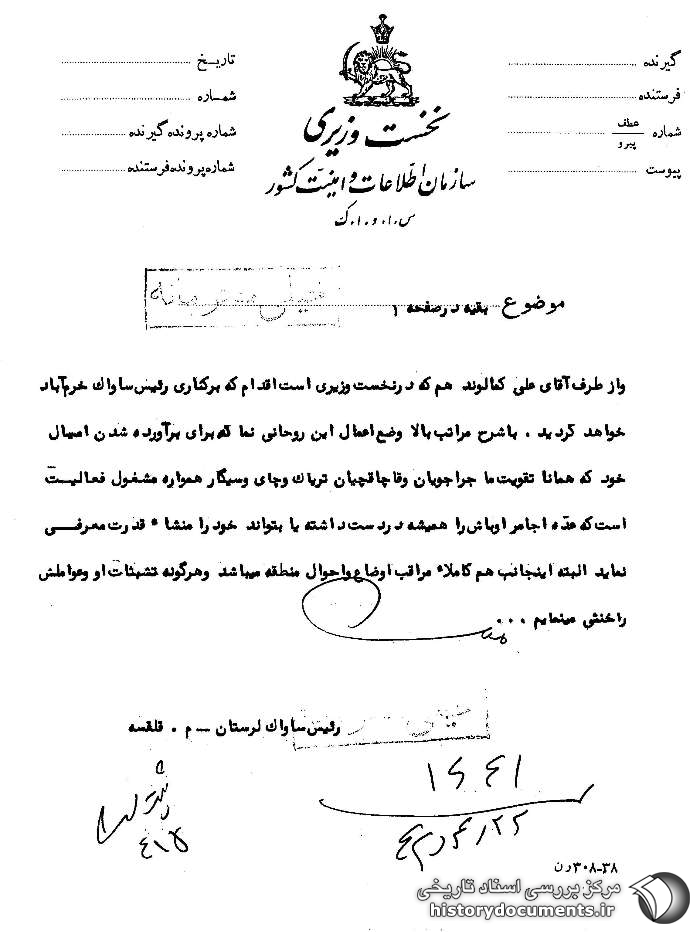 گیرنده
فرستنده
شماره عطف پیرو
پیوست
نخست وزیری
سازمان اطلاعات و امنیت کشور
س.ا.و.ا.ک
تاریخ
شماره
شماره پرونده گیرنده
شماره پرونده فرستنده
موضوع بقیه در صفحه ۱
خیلی محرمانه
واز طرف آقای علی کمالوند هم که در نخست وزیری است اقدام که برکناری رئیس ساواک خرم‌آباد
خواهد گردید . باشرح مراتب بالا وضع اعمال این روحانی نما که برای برآورده شدن امیال
خود که همانا تقویت ماجراجویان وقاچاقچیان تریاک وچای وسیگار همواره مشغول فعالیت
است که عده اجامر اوباش را همیشه در دست داشته یا بتواند خود را منشاء قدرت معرفی
نماید البته اینجانب هم کاملاء مراقب اوضاع واحوال منطقه میباشد وهرگونه تشبثات او وعواملش
راخنثی مینمایم ...
رئیس ساواک لرستان – م . قلقسه
۳۰۸-۳۸ ون
مرکز بررسی اسناد تاریخی
historydocuments.ir